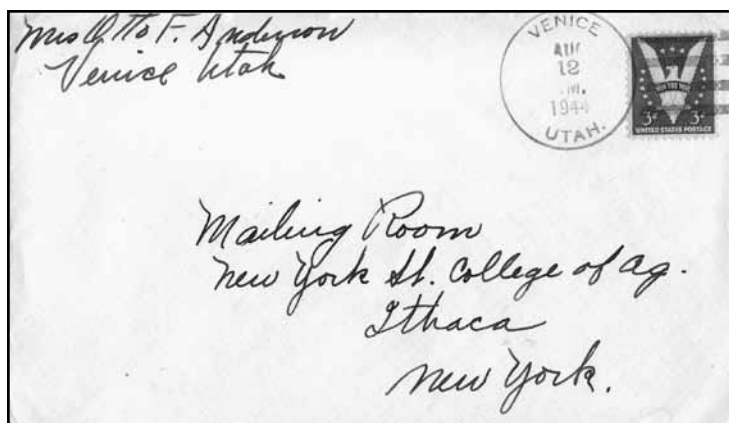 Mrs Otto F. Anderson
Venice Utah
VENICE
AUG
12
.M.
1944
UTAH.
WIN THE WAR
3¢ 3¢
UNITED STATES POSTAGE
Mailing Room
New York St. College of Ag.
Ithaca
New York.